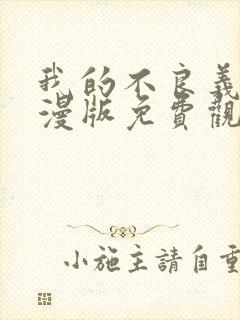 我的不良義
漫版免費觀
小施主請自重